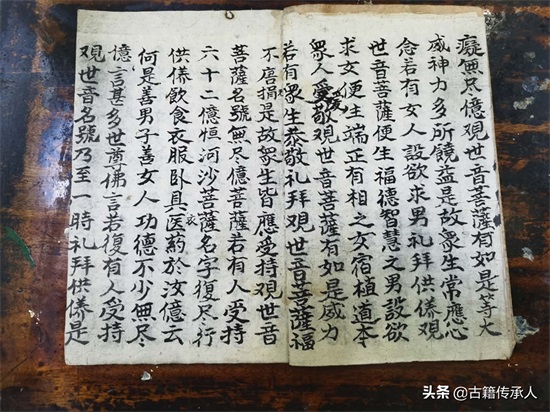 癡無尽億覌世音菩薩有如是等大
威神力多所饒益是故衆生常應心
念若有女人設欲求男礼拜供儀覌
世音菩薩便生福德智慧之男設欲
求女便生端正有相之女宿植道本
衆人愛敬覌世音菩薩有如是威力
若有衆生恭敬礼拜覌世音菩薩福
不唐捐是故衆生皆應受持覌世音
菩薩名號無尽億菩薩若有人受持
六十二億恒河沙菩薩名字復尽行
供儀飲食衣服卧具医葯於汝億云
何是善男子善女人功德不少無尽
億言甚多世尊佛言若復有人受持
覌世音名號乃至一時礼拜供儀是
头条 @古籍传承人